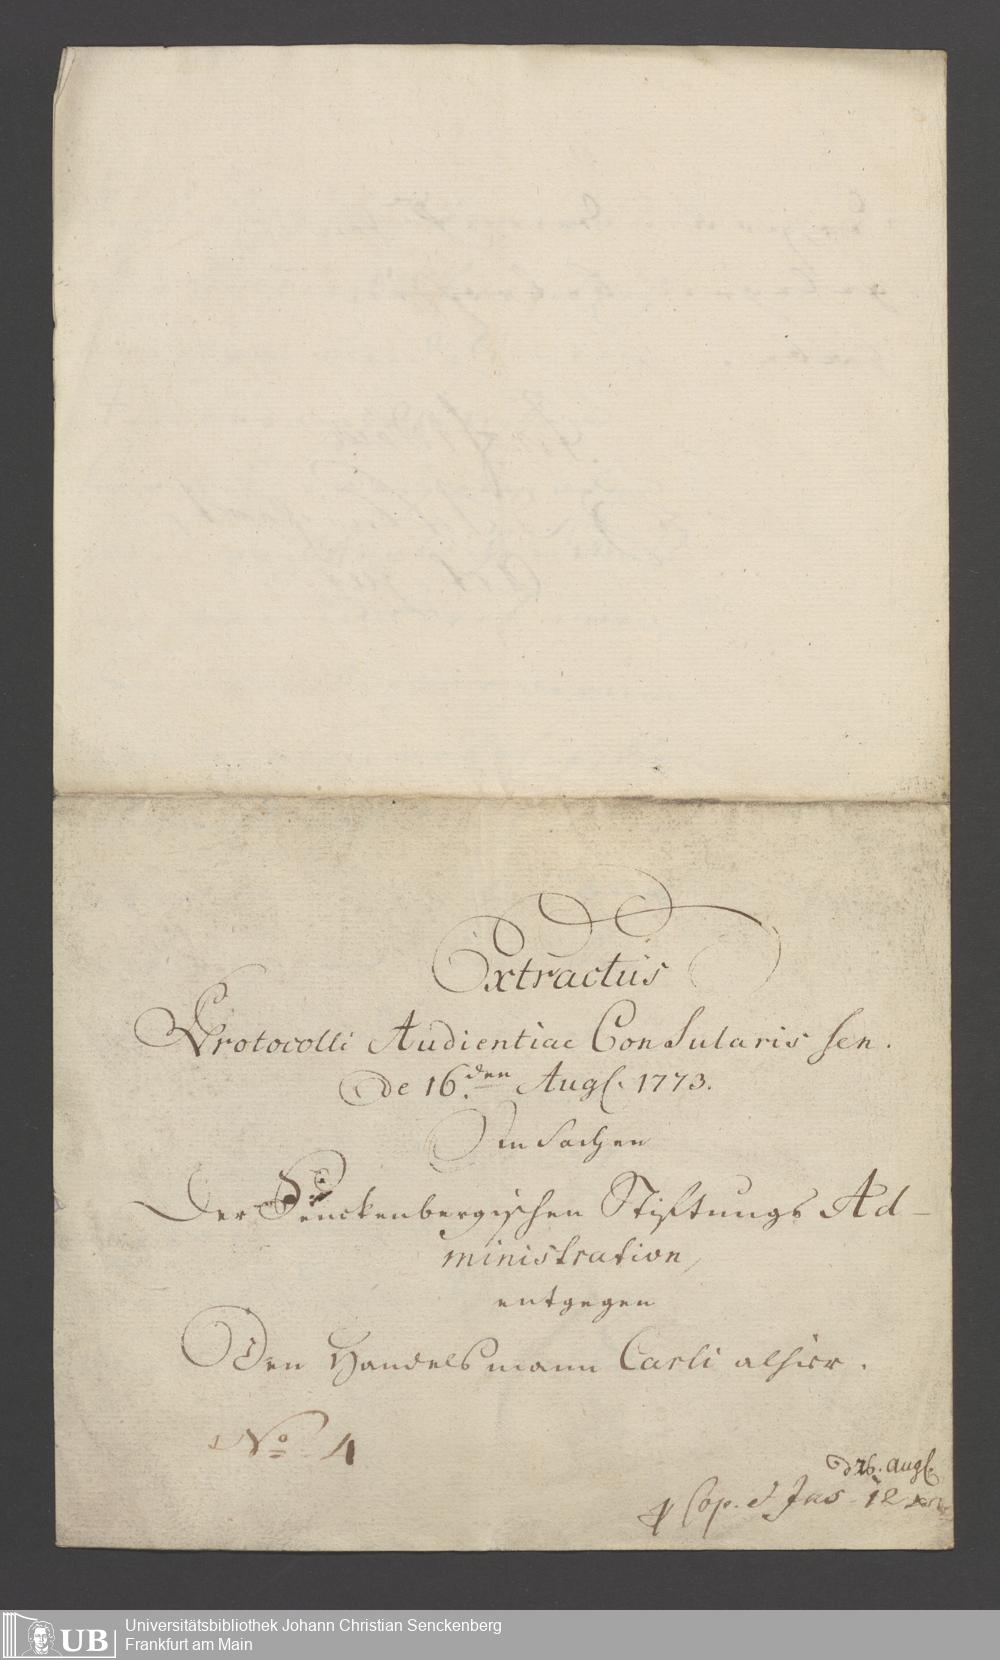 Extractus
Protocolli Audientiae Consularis sen.
de 16.den Augs. 1773.
In Sachen
Der Senckenbergischen Stiftungs Ad-
ministration,
entgegen
Den Handelsmann Carli alhier.
No. 4
d 26. Augs.
Cop. & Jus 12
UB
Universitätsbibliothek Johann Christian Senckenberg
Frankfurt am Main